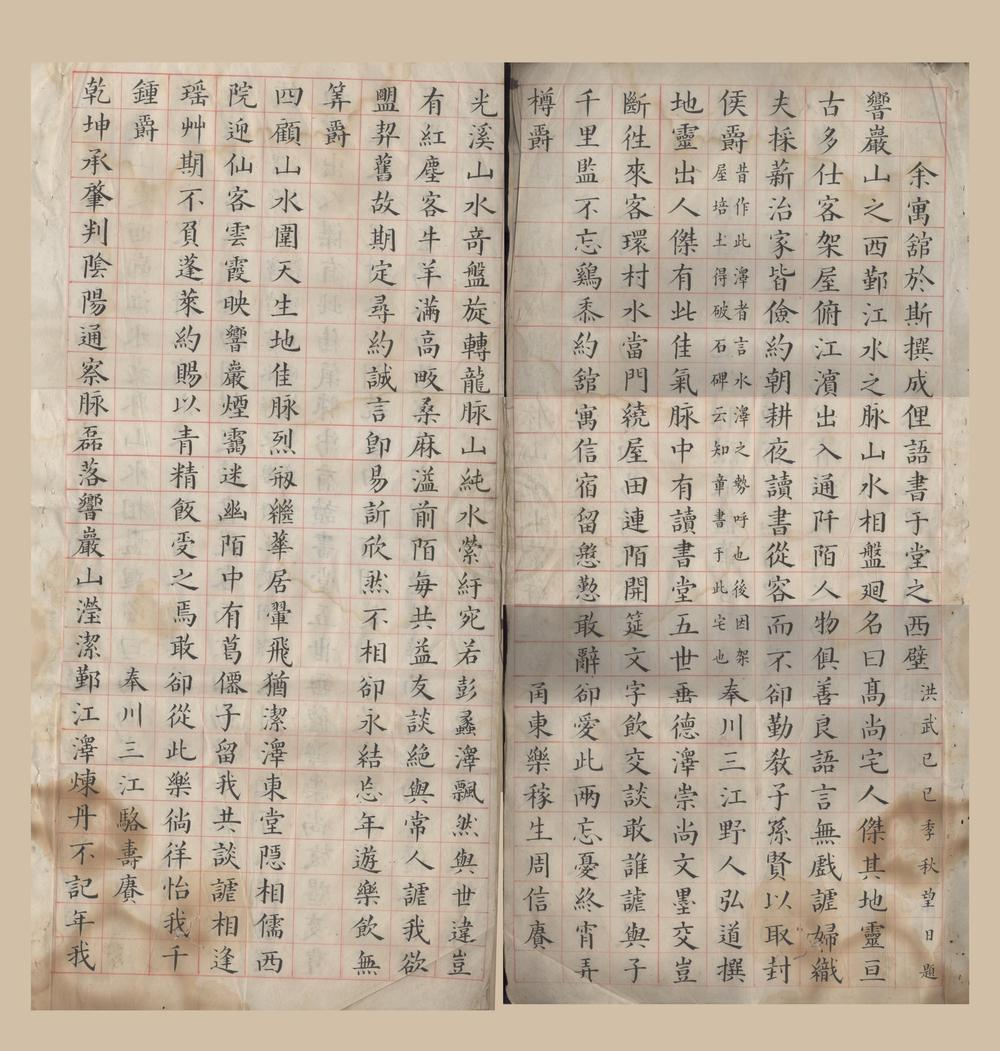 余寓舘於斯撰成俚語書于堂之西壁洪武己巳季秋望日題
響巖山之西鄞江水之脉山水相盤廻名曰髙尚宅人傑其地靈亘
古多仕客架屋俯江濱出入通阡陌人物俱善良語言無戲謔婦織
夫採薪治家皆儉約朝耕夜讀書從容而不卻勤教子孫賢以取封
侯爵昔作此澤者言水澤之勢呼也後因架
屋培土得破石碑云知章書于此宅也奉川三江野人弘道撰
地靈出人傑有此佳氣脉中有讀書堂五世垂德澤崇尚文墨交豈
斷徃來客環村水當門繞屋田連陌開筵文字飲交談敢誰謔與子
千里監不忘鷄黍約舘寓信宿留慇懃敢辭卻愛此兩忘憂終宵弄
樽爵甬東樂稼生周信賡
光溪山水竒盤旋轉龍脉山純水縈紆宛若彭蠡澤飄然與世違豈
有紅塵客牛羊滿高畈桑麻溢前陌每共益友談絶與常人謔我欲
盟契舊故期定尋約誠言卽易訢欣然不相卻永結忘年遊樂飲無
筭爵
四顧山水圍天生地佳脉烈祖繼華居翬飛猶潔澤東堂隱相儒西
院迎仙客雲霞映響巖煙靄迷幽陌中有葛僊子留我共談謔相逢
瑶艸期不負蓬萊約賜以青精飯受之焉敢卻從此樂徜徉怡我千
鍾爵奉川三江駱壽賡
乾坤承肇判陰陽通察脉磊落響巖山瀅潔鄞江澤煉丹不記年我